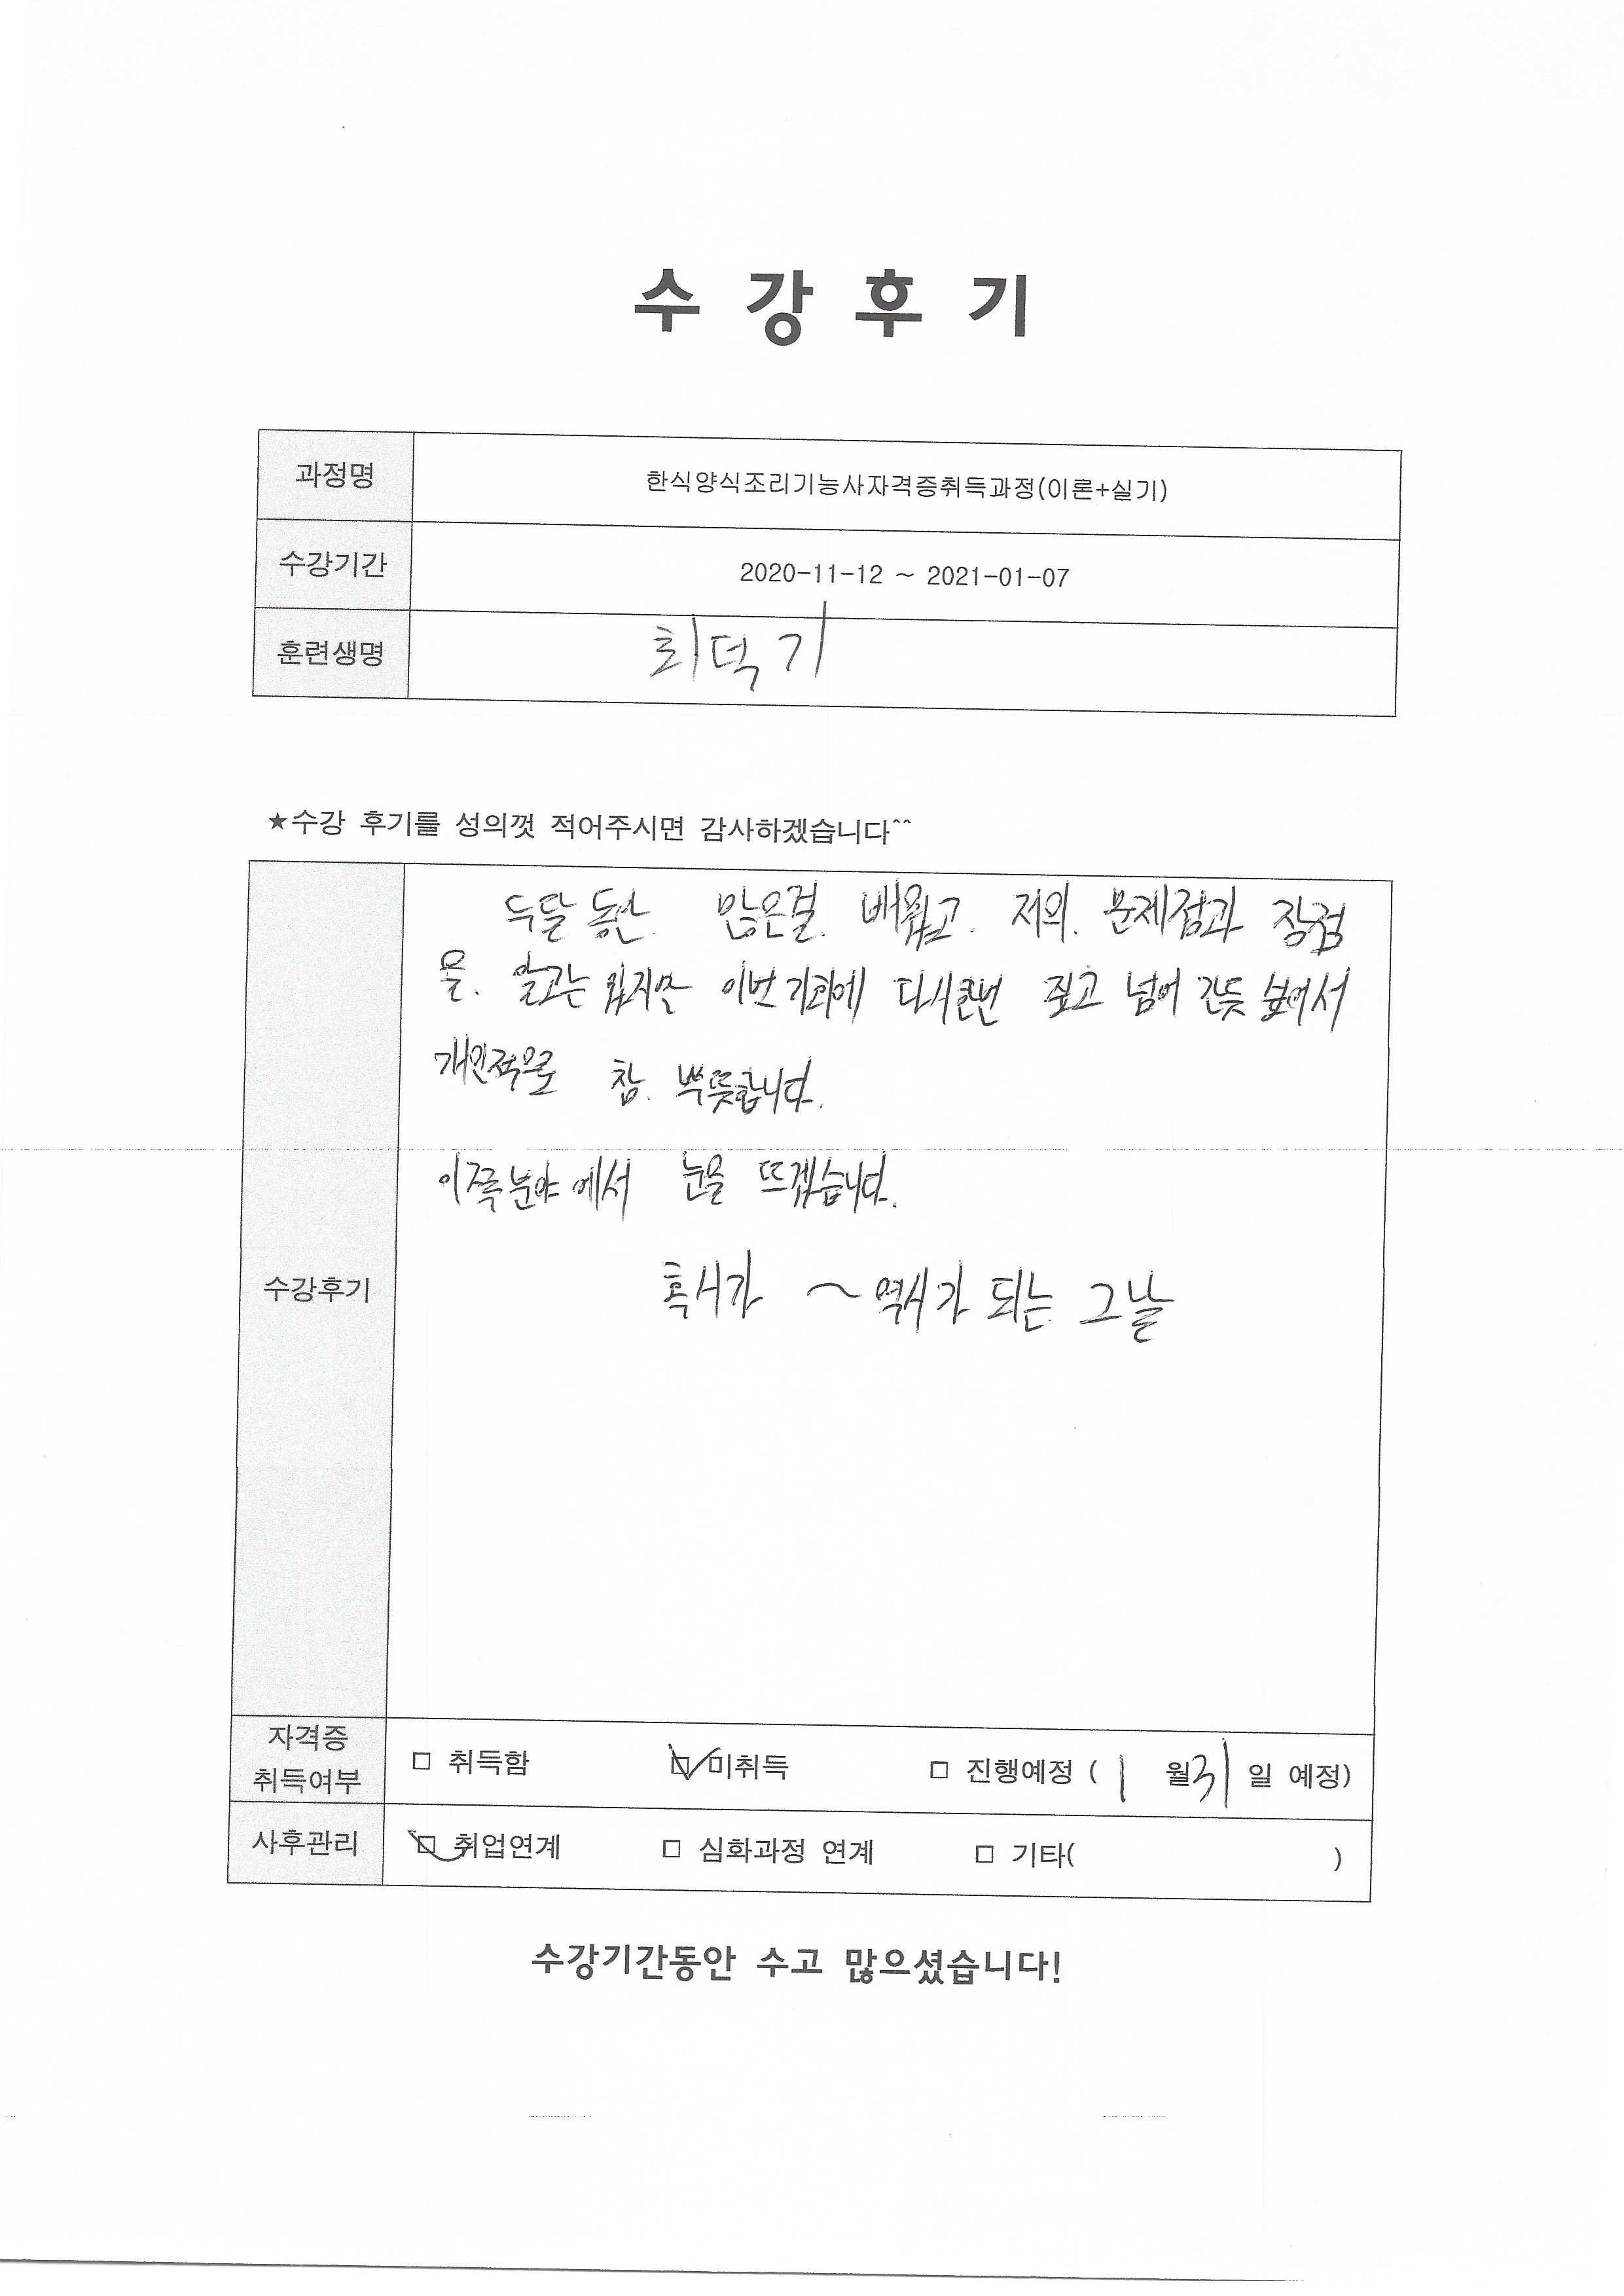 수 강 후 기
과정명 한식양식조리기능사자격증취득과정(이론+실기)
수강기간 2020-11-12 ~ 2021-01-07
훈련생명 최덕기
★수강 후기를 성의껏 적어주시면 감사하겠습니다^^
수강후기
두달 동안. 많은걸. 배웠고. 저의. 문제점과 장점
을. 알고는 있지만 이번기회에 다시한번 짚고 넘어 간듯 싶어서
개인적으로 참. 뿌듯합니다.
이쪽분야에서 눈을 뜨겠습니다.
혹시가 ~ 역시가 되는 그날
자격증 취득여부 □ 취득함 ☑ 미취득 □ 진행예정 ( 1 월 31 일 예정)
사후관리 ☑ 취업연계 □ 심화과정 연계 □ 기타( )
수강기간동안 수고 많으셨습니다!